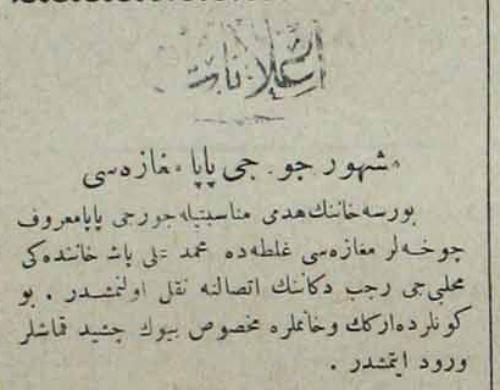 اعلانات
مشهور جورجى پاپا مغازه‌سى
بورسه خاننك هدمى مناسبتيله جورجى پاپا معروف
چوخه‌لر مغازه‌سى غلطه‌ده محمد على پاشا خاننده‌كى
محلبى‌جى رجب دكاننك اتصالنه نقل اولنمشدر . بو
كونلرده اركك و خانملره مخصوص بيوك چشيد قماشلر
ورود ايتمشدر .